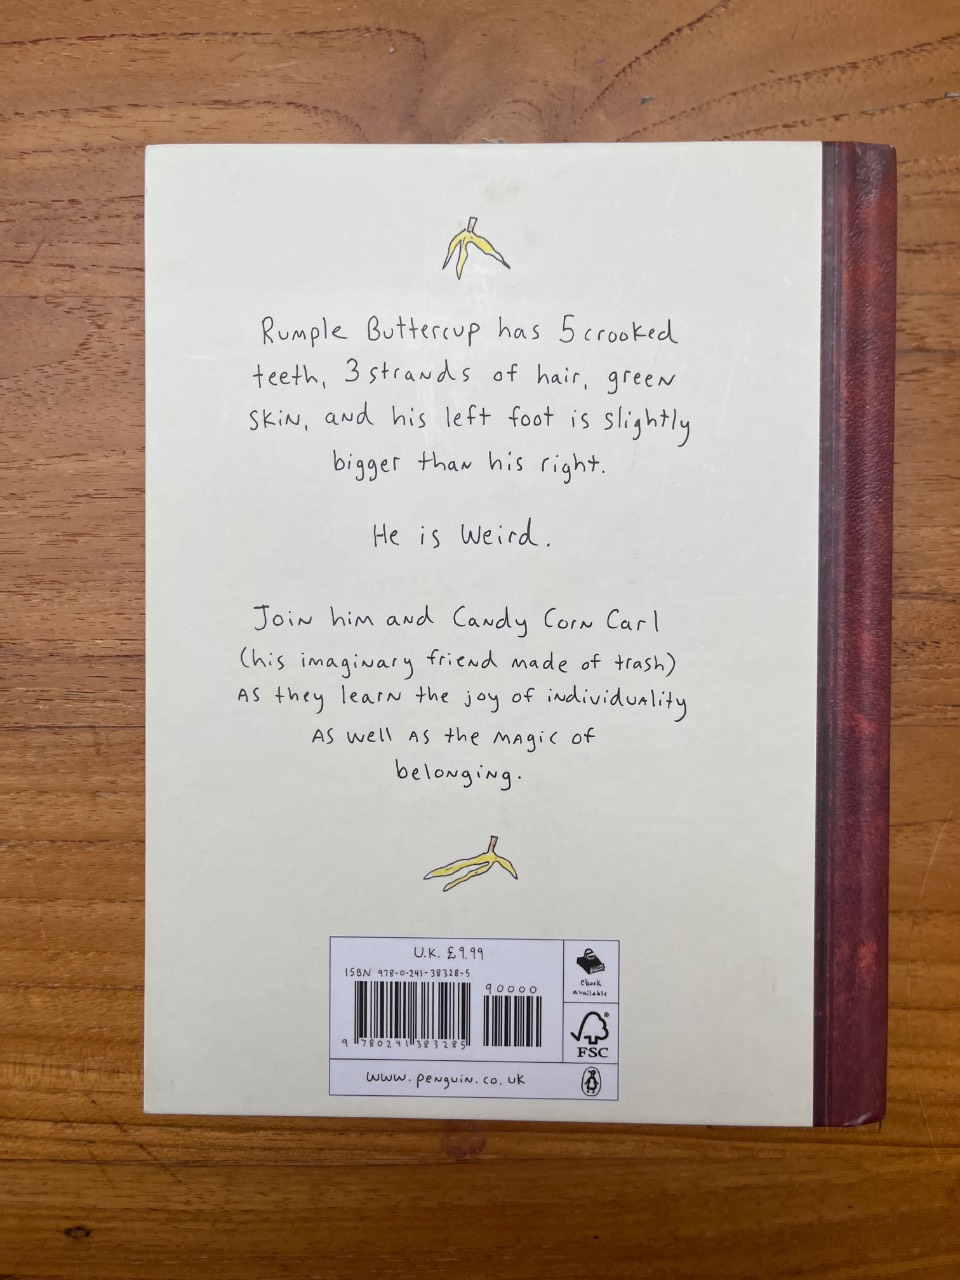 Rumple Buttercup has 5 crooked
teeth, 3 strands of hair, green
skin, and his left foot is slightly
bigger than his right.
He is Weird.
Join him and Candy Corn Carl
(his imaginary friend made of trash)
as they learn the joy of individuality
as well as the magic of
belonging.
U.K. £9.99
ISBN 978-0-241-38328-5
90000
9 780241 383285
ebook
available
FSC
www.penguin.co.uk